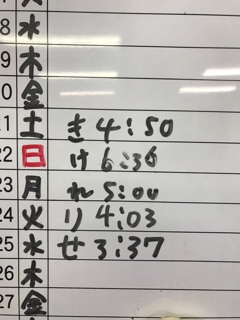 8 水
9 木
0 金
21 土 き4:50
22 日 け6:36
23 月 れ5:00
24 火 り4:03
25 水 せ3:37
26 木
27 金